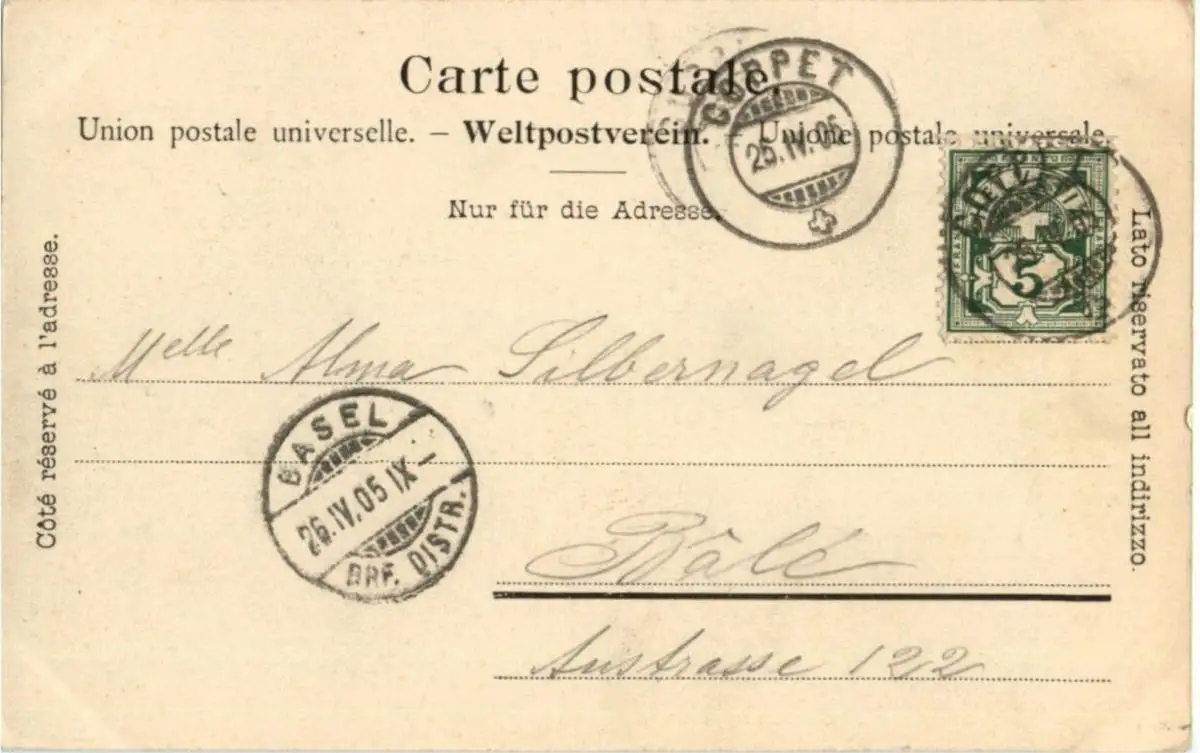 Carte postale.
Union postale universelle. – Weltpostverein. – Unione postale universale.
Nur für die Adresse.
COPPET
25.IV.05
COPPET
HELVETIA
5
Côté réservé à l'adresse.
Lato riservato all indirizzo.
Melle Alma Silbernagel
BASEL
26.IV.05 IX –
BRF. DISTR.
Bâle
Austrasse 122